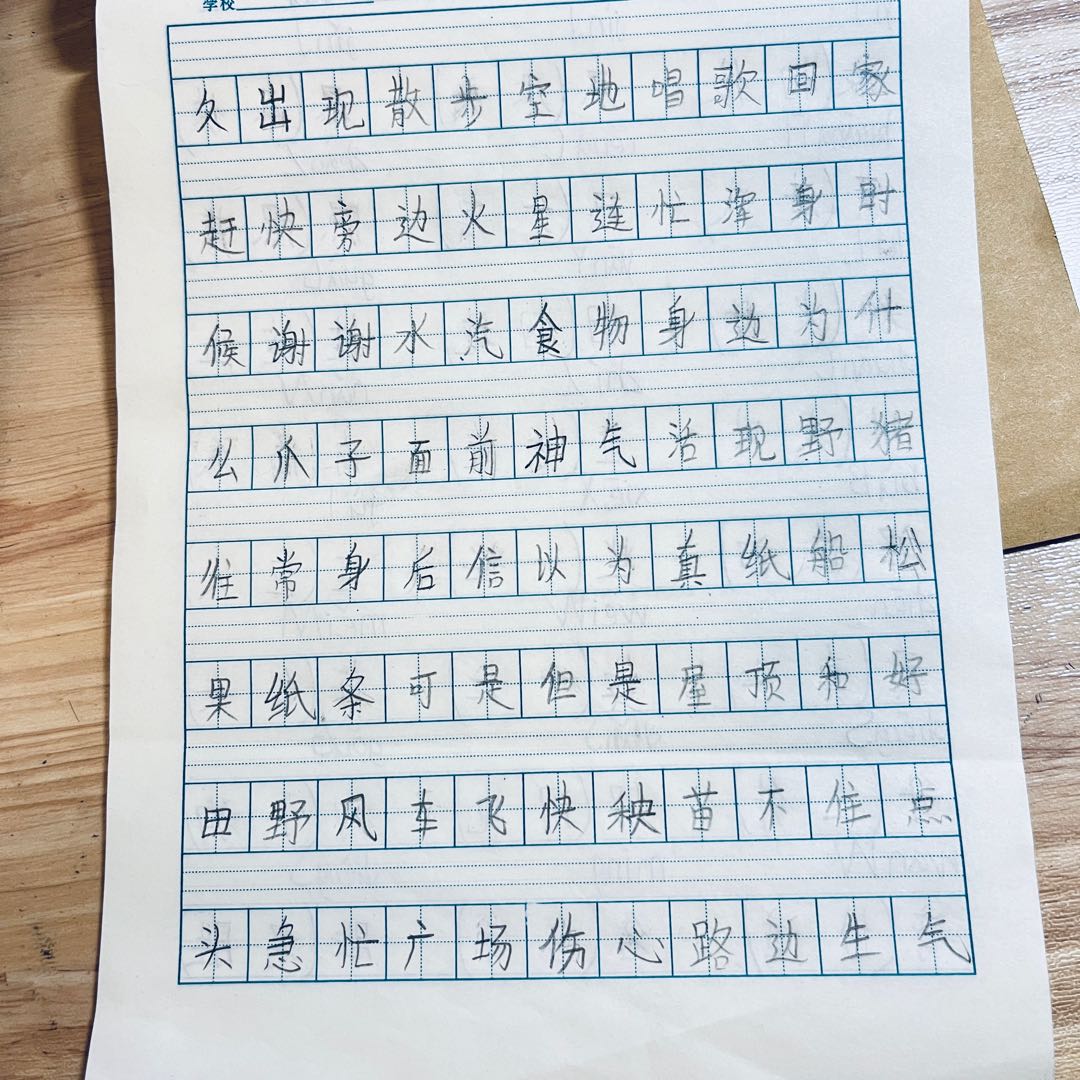 学校
久出现散步空地唱歌回家
赶快旁边火星连忙浑身时
候谢谢水汽食物身边为什
么爪子面前神气活现野猪
往常身后信以为真纸船松
果纸条可是但是屋顶和好
田野风车飞快秧苗不住点
头急忙广场伤心路边生气